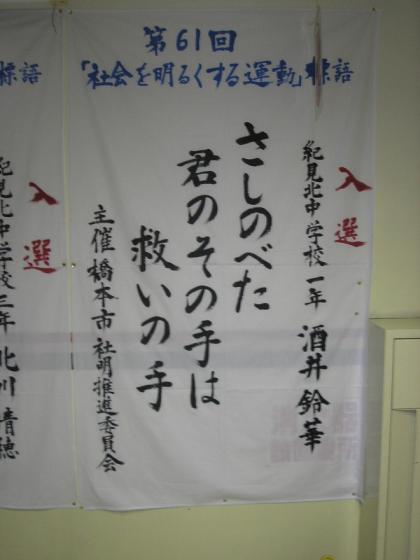 第61回
「社会を明るくする運動」標語
入選
紀見北中学校一年 酒井鈴華
さしのべた
君のその手は
救いの手
主催橋本市社明推進委員会
標語
入選
紀見北中学校三年 北川晴穂